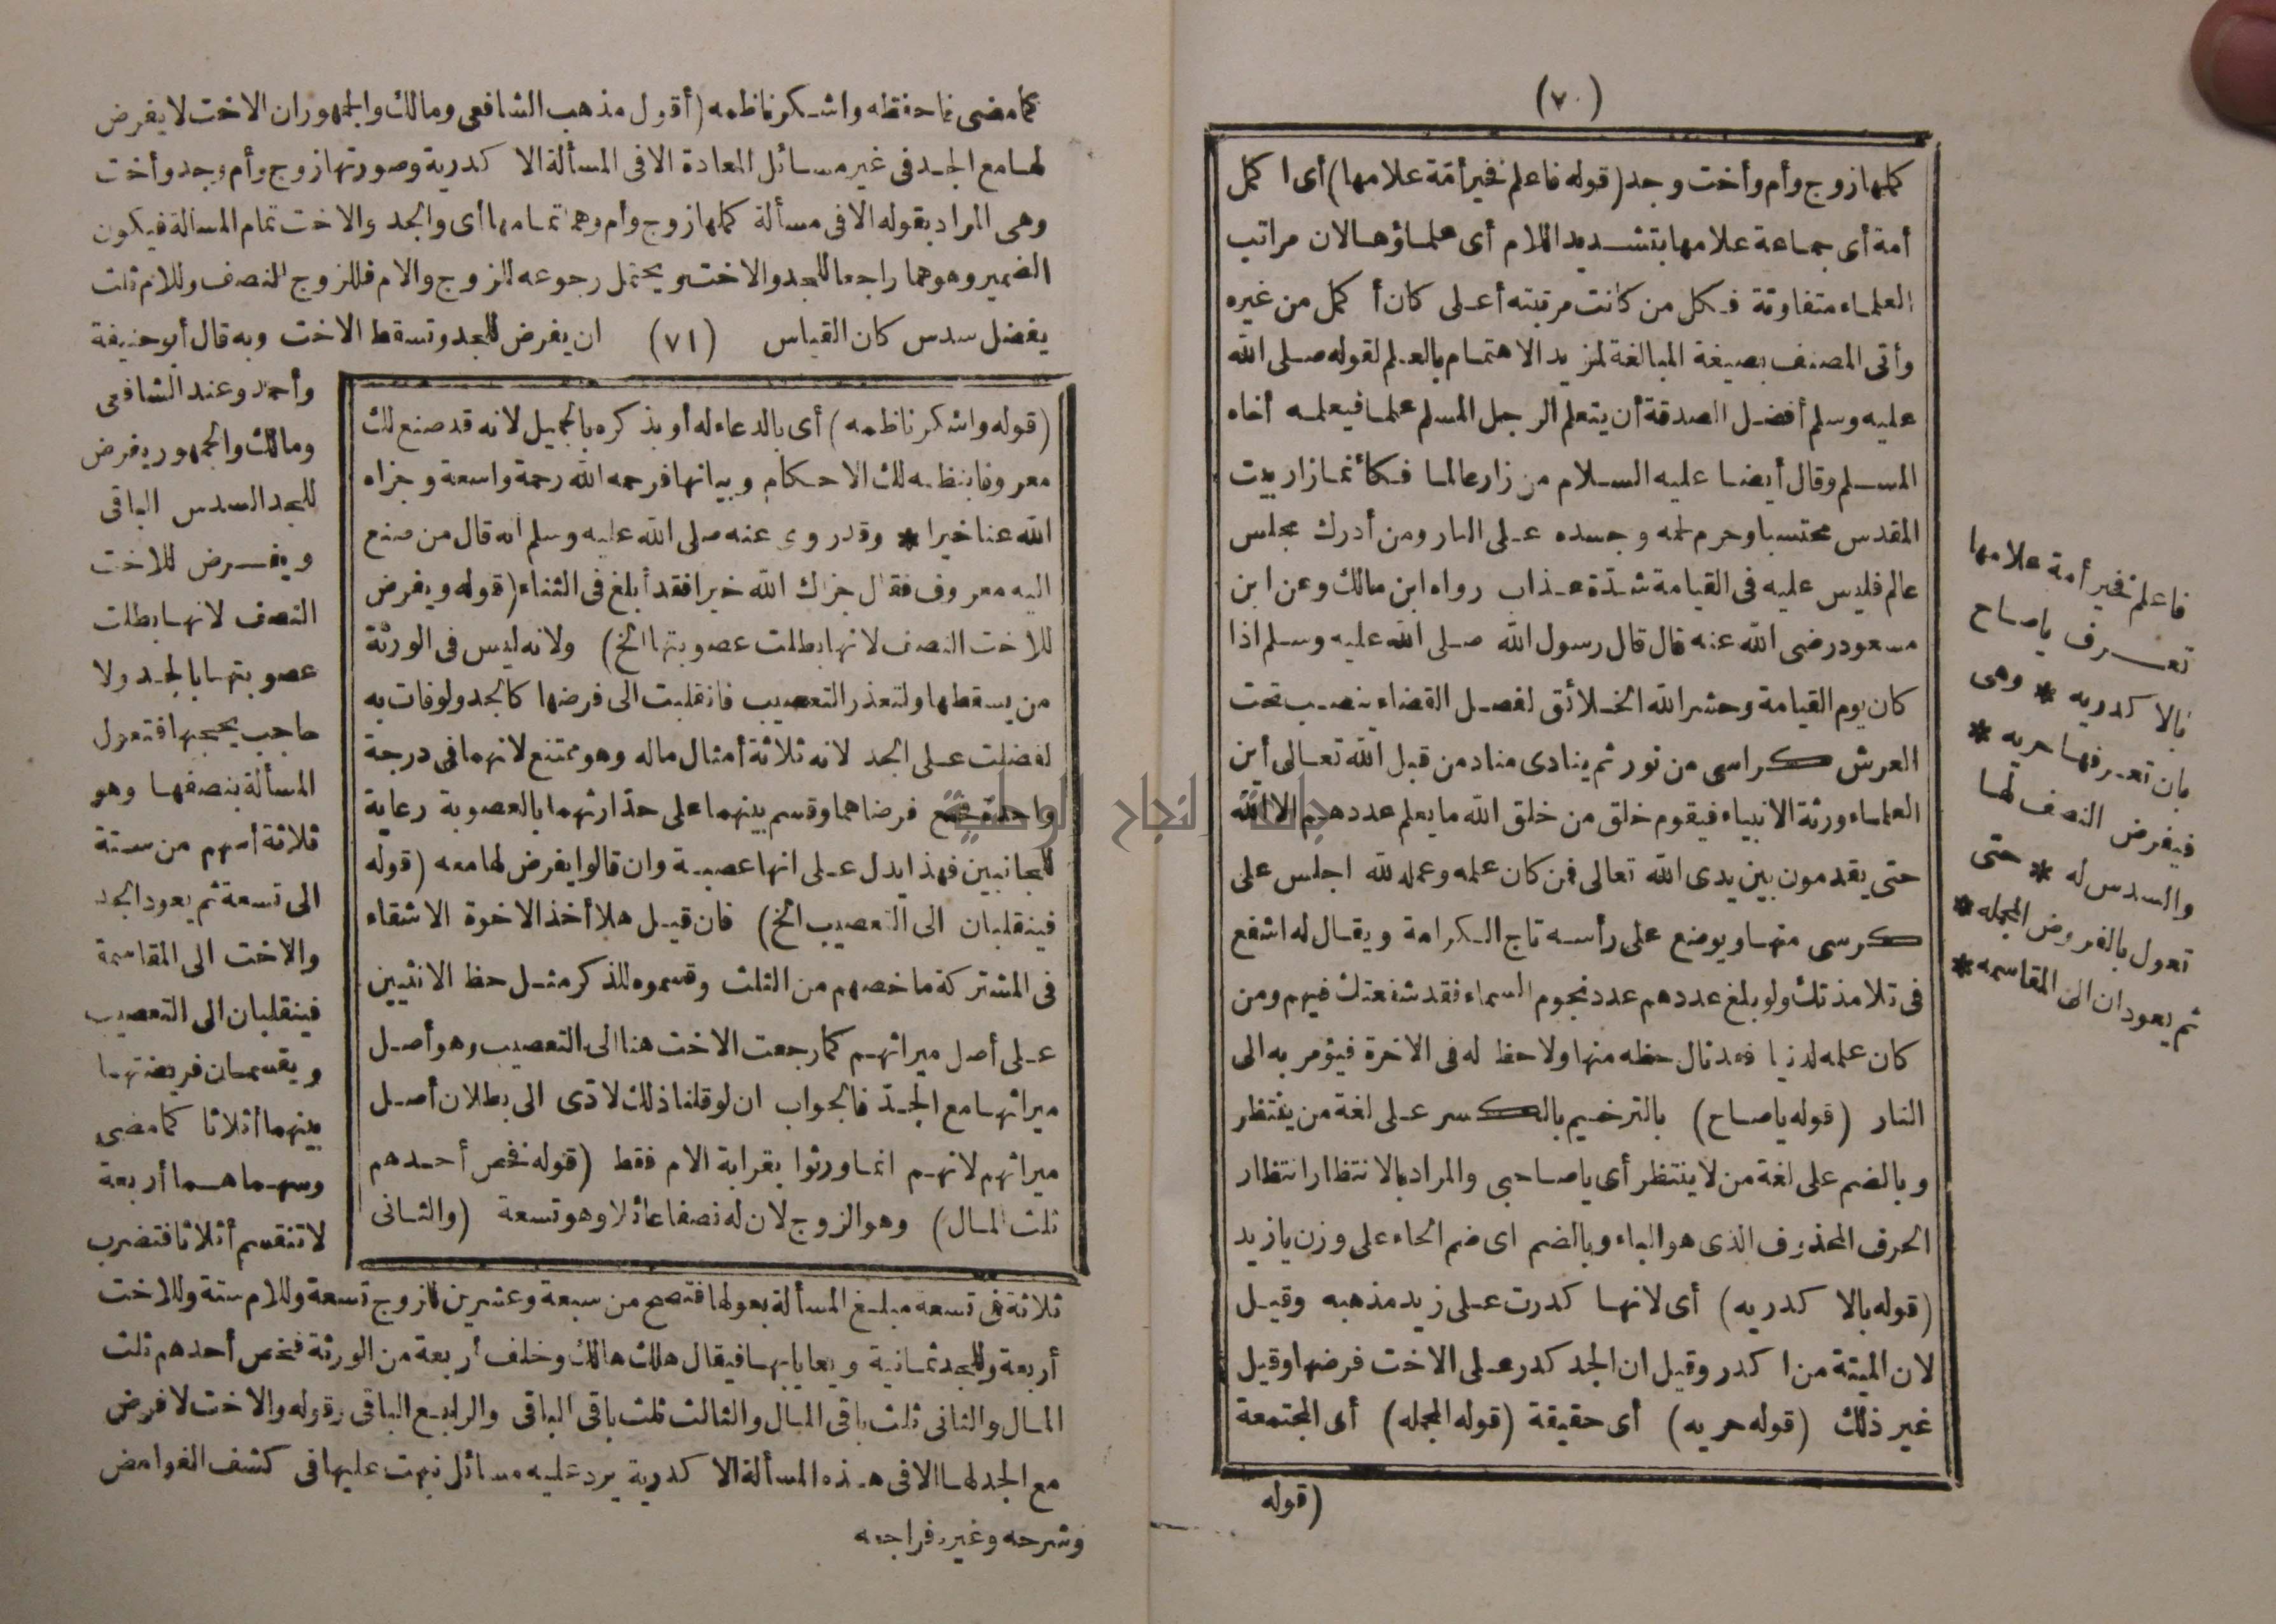 (٧٠)
كملها زوج وأم وأخت وجد (قوله فاعلم فخير أمة علامها) أى اكمل
أمة أى جماعة علامها بتشديد اللام أى علماؤها لان مراتب
العلماء متفاوتة فكل من كانت مرتبته أعلى كان أكمل من غيره
وأتى المصنف بصيغة المبالغة لمزيد الاهتمام بالعلم لقوله صلى الله
عليه وسلم أفضل الصدقة أن يتعلم الرجل المسلم علما فيعلمه أخاه
المسلم وقال أيضا عليه السلام من زار عالما فكأنما زار بيت
المقدس محتسبا وحرم لحمه وجسده على النار ومن أدرك مجلس
عالم فليس عليه فى القيامة شدة عذاب رواه ابن مالك وعن ابن
مسعود رضى الله عنه قال قال رسول الله صلى الله عليه وسلم اذا
كان يوم القيامة وحشر الله الخلائق لفصل القضاء ينصب تحت
العرش كراسى من نور ثم ينادى مناد من قبل الله تعالى أين
العلماء ورثة الانبياء فيقوم خلق من خلق الله ما يعلم عددهم الا الله
حتى يقدمون بين يدى الله تعالى فمن كان علمه وعمله لله اجلس على
كرسى منها ويوضع على رأسه تاج الكرامة ويقال له اشفع
فى تلامذتك ولو بلغ عددهم عدد نجوم السماء فقد شفعتك فيهم ومن
كان علمه لدنيا فقد نال حظه منها ولا حظ له فى الاخرة فيؤمر به الى
النار (قوله ياصاح) بالترخيم بالكسر على لغة من ينتظر
وبالضم على لغة من لا ينتظر أى ياصاحبى والمراد بالانتظار انتظار
الحرف المحذوف الذى هو الباء وبالضم اى ضم الحاء على وزن يازيد
(قوله بالاكدريه) أى لانها كدرت على زيد مذهبه وقيل
لان الميتة من اكدر وقيل ان الجد كدر على الاخت فرضها وقيل
غير ذلك (قوله حريه) أى حقيقة (قوله المجمله) أى المجتمعة
(قوله
فاعلم فخير أمة علامها
تعرف ياصاح
بالاكدريه * وهى
بان تعرفها حريه *
فيفرض النصف لها
والسدس له * حتى
تعول بالفروض المجمله *
ثم يعودان الى المقاسمه *
كما مضى فاحفظه واشكر ناظمه (أقول مذهب الشافعى ومالك والجمهور ان الاخت لا يفرض
لها مع الجد فى غير مسائل المعادة الا فى المسألة الاكدرية وصورتها زوج وأم وجد وأخت
وهى المراد بقوله الا فى مسألة كملها زوج وأم وهما تمامها أى والجد والاخت تمام المسألة فيكون
الضمير وهو هما راجعا للجد والاخت ويحتمل رجوعه للزوج والام فللزوج النصف وللام ثلث
يفضل سدس كان القياس (٧١) ان يفرض للجد وتسقط الاخت وبه قال أبو حنيفة
وأحمد وعند الشافعى
ومالك والجمهور يفرض
للجد السدس الباقى
ويفرض للاخت
النصف لانها بطلت
عصوبتها بالجد ولا
حاجب يحجبها فتعول
المسألة بنصفها وهو
ثلاثة أسهم من ستة
الى تسعة ثم يعود الجد
والاخت الى المقاسمة
فينقلبان الى التعصيب
ويقسمان فريضتها
بينهما أثلاثا كما مضى
وسهماهما أربعة
لا تنقسم أثلاثا فتضرب
(قوله واشكر ناظمه) أى بالدعاء له أو بذكره بالجميل لانه قد صنع لك
معروفا بنظمه لك الاحكام وبيانها فرحمه الله رحمة واسعة وجزاه
الله عنا خيرا * وقد روى عنه صلى الله عليه وسلم انه قال من صنع
اليه معروف فقال جزاك الله خيرا فقد أبلغ فى الثناء (قوله ويفرض
للاخت النصف لانها بطلت عصوبتها الخ) ولانه ليس فى الورثة
من يسقطها ولتعذر التعصيب فانقلبت الى فرضها كالجد ولو فات به
لفضلت على الجد لانه ثلاثة أمثال ماله وهو ممتنع لانهما فى درجة
واحدة فجمع فرضاهما وقسم بينهما على حد ارثهما بالعصوبة رعاية
للجانبين فهذا يدل على انها عصبة وان قالوا يفرض لها معه (قوله
فينقلبان الى التعصيب الخ) فان قيل هلا أخذ الاخوة الاشقاء
فى المشتركة ما خصهم من الثلث وقسموه للذكر مثل حظ الانثيين
على أصل ميراثهم كما رجعت الاخت هنا الى التعصيب وهو أصل
ميراثها مع الجد فالجواب ان لو قلنا ذلك لادى الى بطلان أصل
ميراثهم لانهم انما ورثوا بقرابة الام فقط (قوله فخص أحدهم
ثلث المال) وهو الزوج لان له نصفا عائلا وهو تسعة (والثانى
ثلاثة فى تسعة مبلغ المسألة بعولها فتصح من سبعة وعشرين للزوج تسعة وللام ستة وللاخت
أربعة وللجد ثمانية ويعايا بها فيقال هلك هالك وخلف أربعة من الورثة فخص أحدهم ثلث
المال والثانى ثلث باقى المال والثالث ثلث باقى الباقى والرابع الباقى وقوله والاخت لا فرض
مع الجد لها الا فى هذه المسألة الاكدرية يرد عليه مسائل نبهت عليها فى كشف الغوامض
وشرحه وغيره فراجعه
جامعة النجاح الوطنية